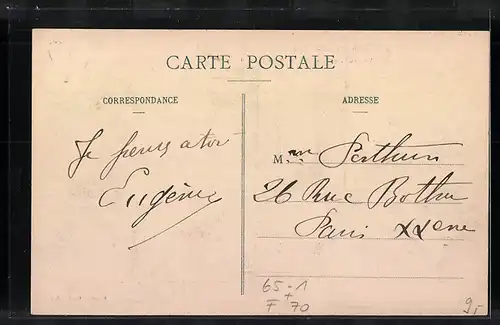 CARTE POSTALE
CORRESPONDANCE
Je pense a toi
Eugène
ADRESSE
M
26 Rue Botha
Paris XXeme
65-1
+
F 70
9,-